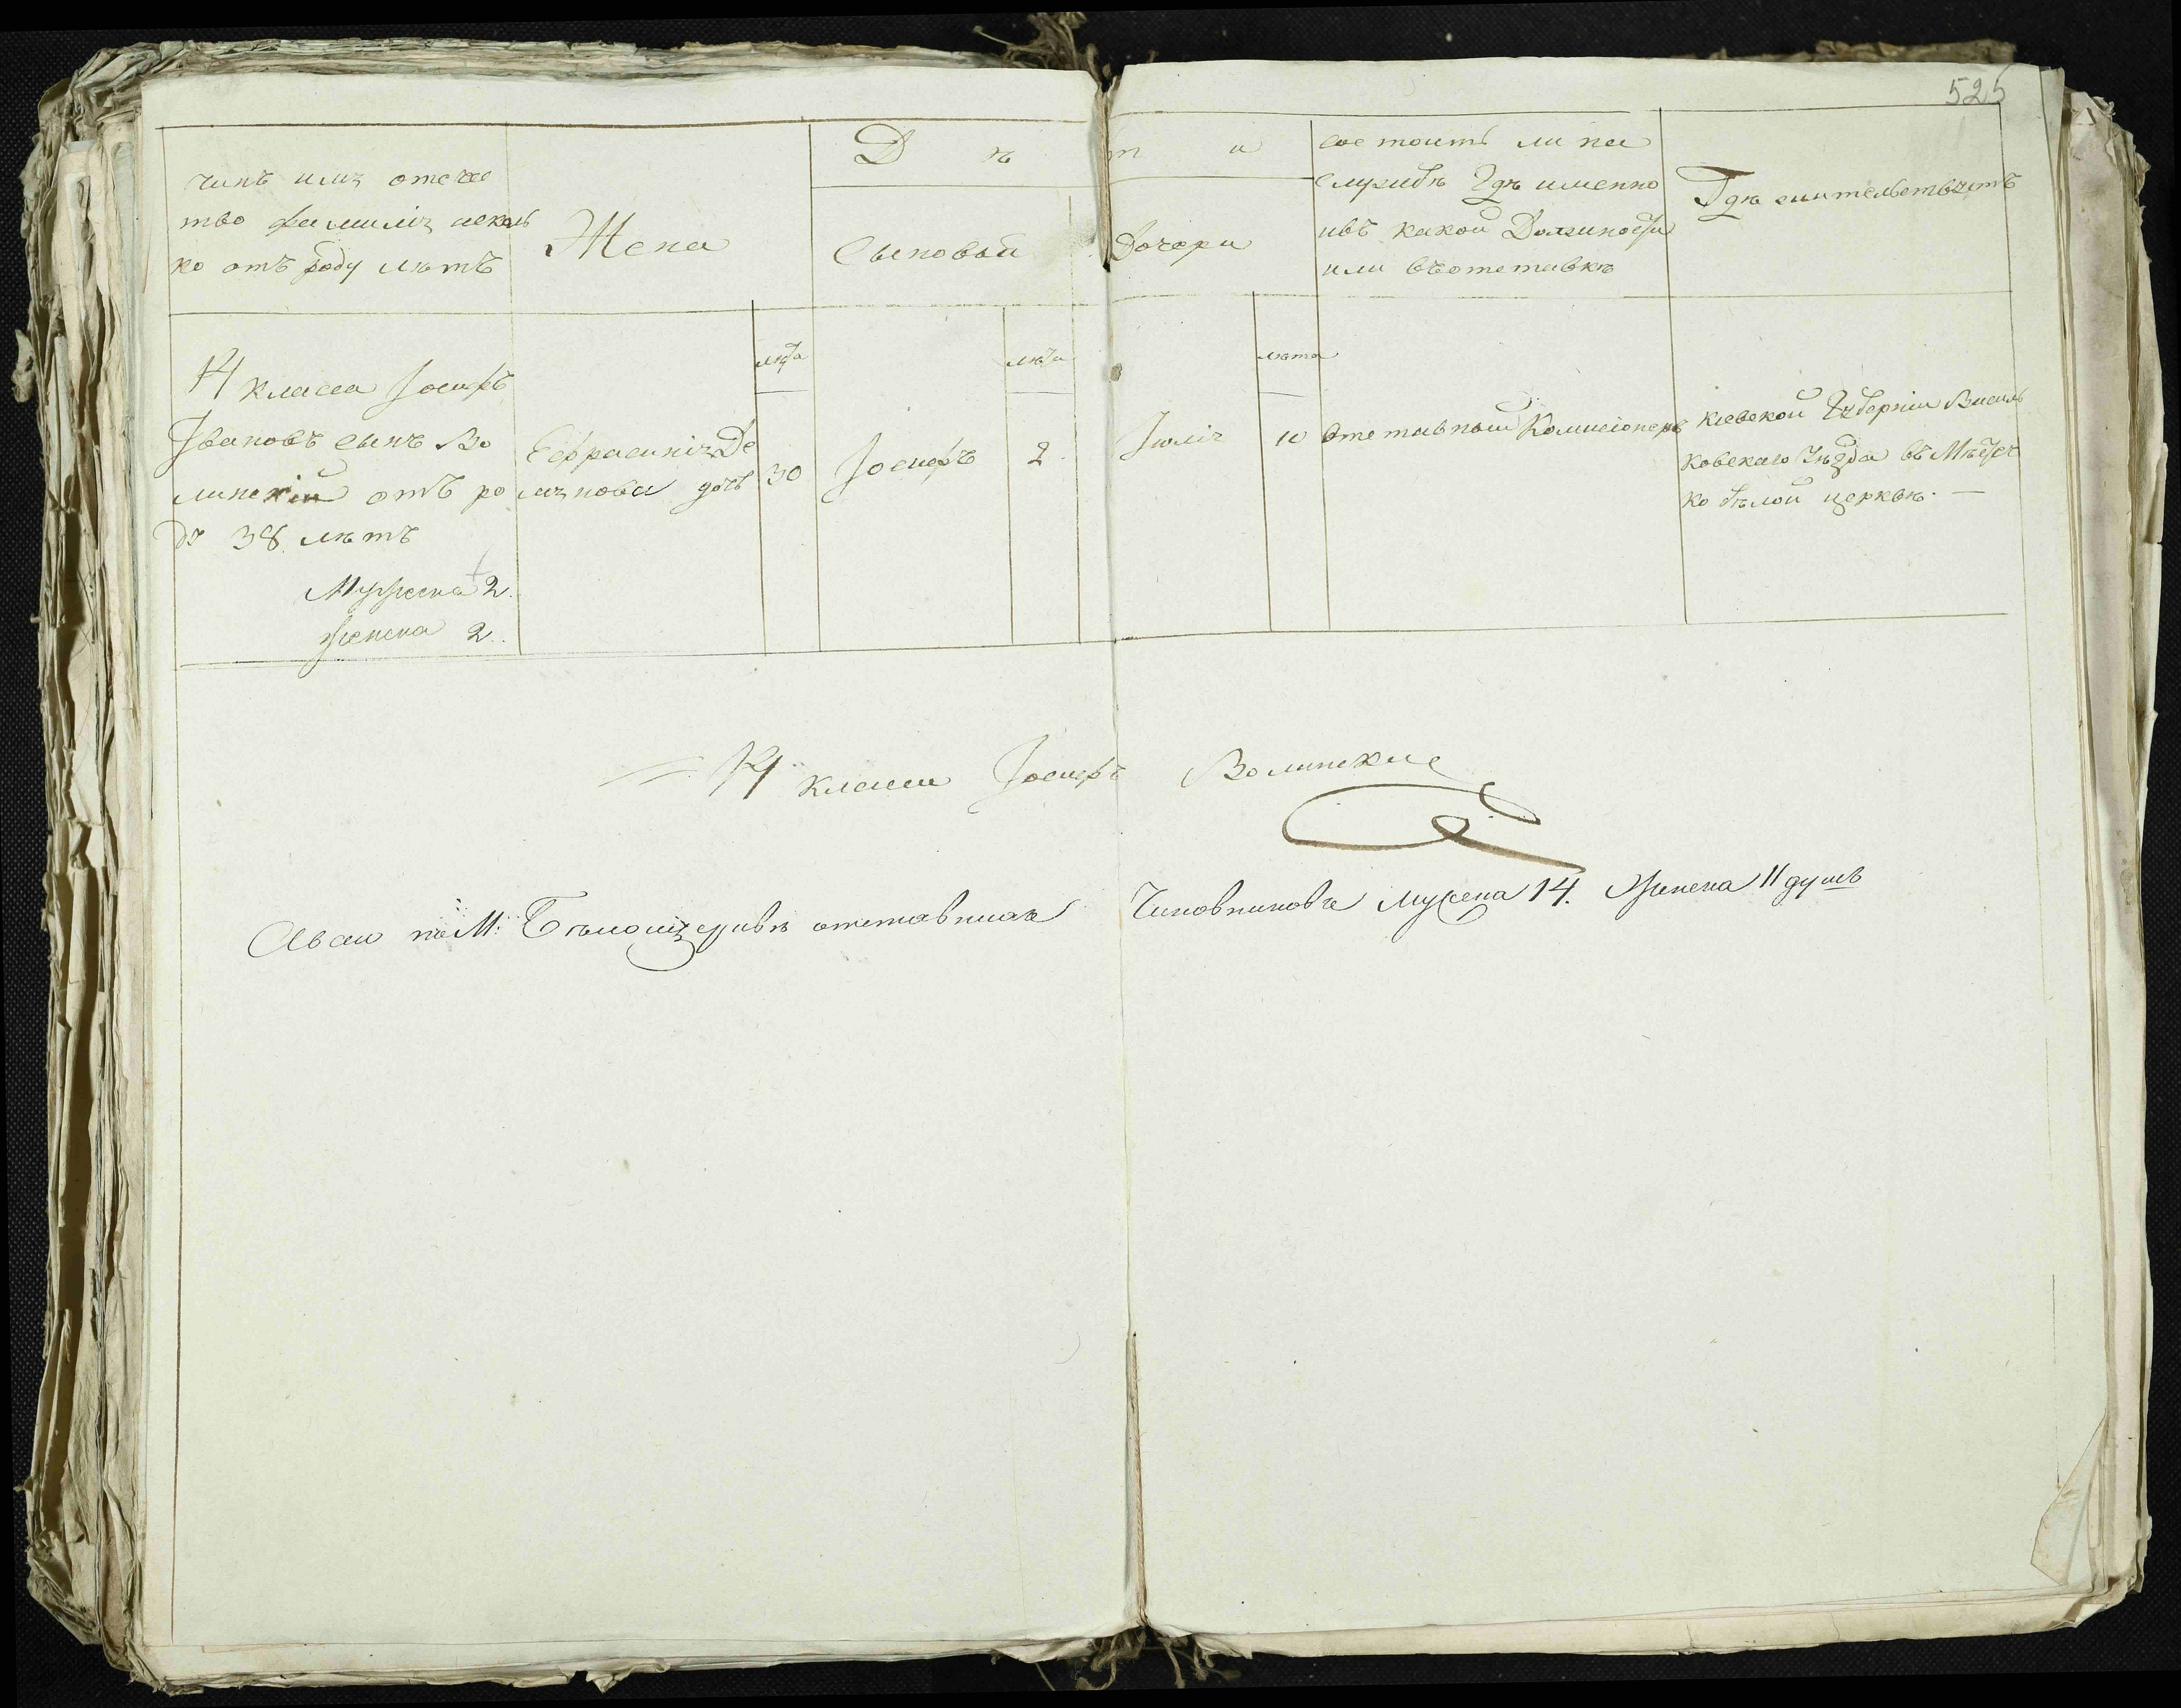 525
чинъ имя отече
ство фамилія исколь
ко отъ роду лѣтъ
Жена
Д ѣ т и
Сыновья
Дочери
состоитъ ли на
службѣ гдѣ именно
ивъ какой Должности
или въотставкѣ
Гдѣ жительствуетъ
лѣта
лѣта
лѣта
14 класса Іосифъ
Івановъ сынъ Во
линскій отъ ро
ду 38 лѣтъ
Мужеска 2.
женска 2.
Ефрасинія Де
мянова дочь
30
Іосифъ
2
Іюлія
10
Отставный Коммисіонеръ
Кіевской Губерніи Василь
ковскаго Уѣзда въ Мѣстеч
ко бѣлой церквѣ. —
14 класса Іосифъ Волинскій
Авсего по М: Бѣлоцерквѣ отставныхъ Чиновниковъ мужеска 14. Женска 11 душъ